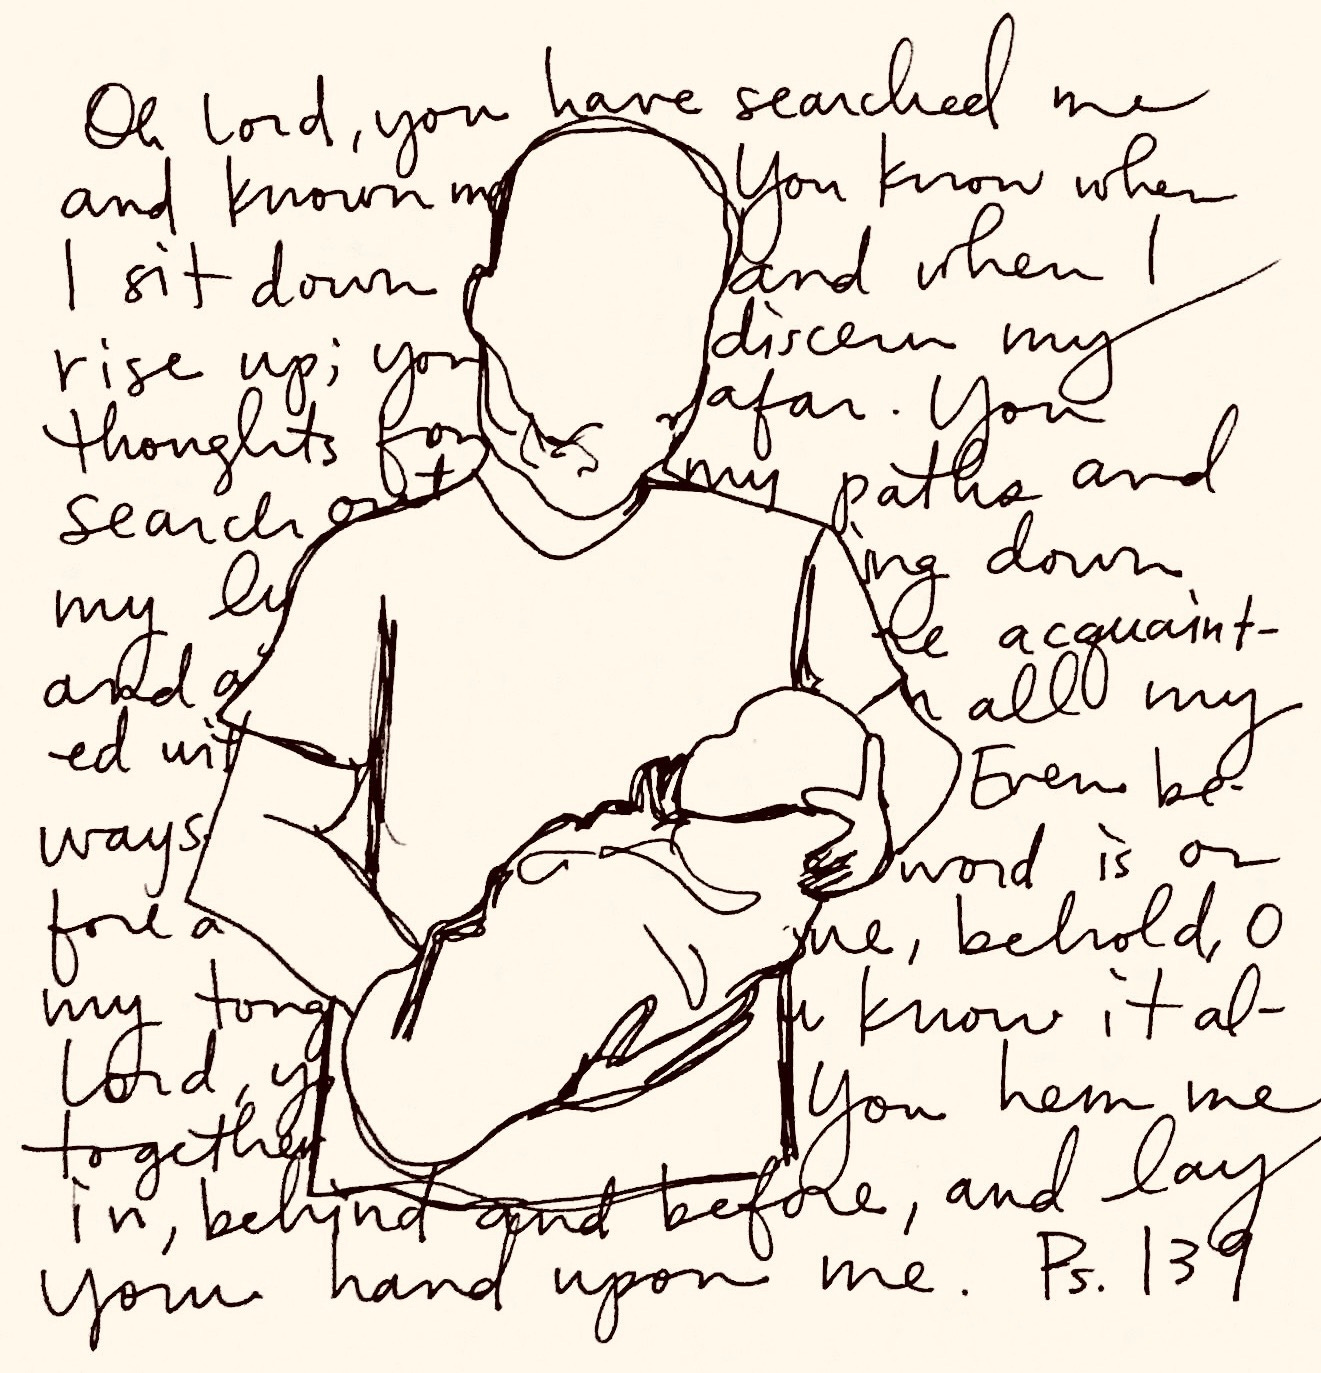 Oh Lord, you have searched me
and known me You know when
I sit down and when I
rise up; you discern my
thoughts from afar. You
search out my paths and
my ly ing down
and a re acquaint-
ed wit h all my
ways. Even be-
fore a word is on
my tong ue, behold, O
Lord, y u know it al-
together You hem me
in, behind and before, and lay
your hand upon me. Ps. 139